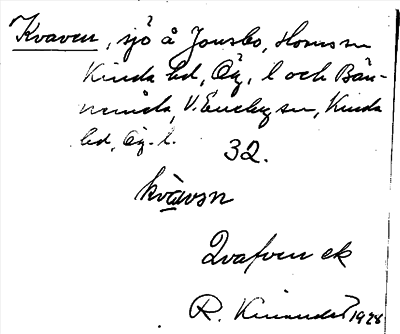 Kvaven, sjö å Jonsbo, Horns sn
Kinda hd, Ög. l och Bän-
V. Eneby sn, Kinda
hd, Ög. l.
32.
kvävsn
Qvafven ek
R. 1928